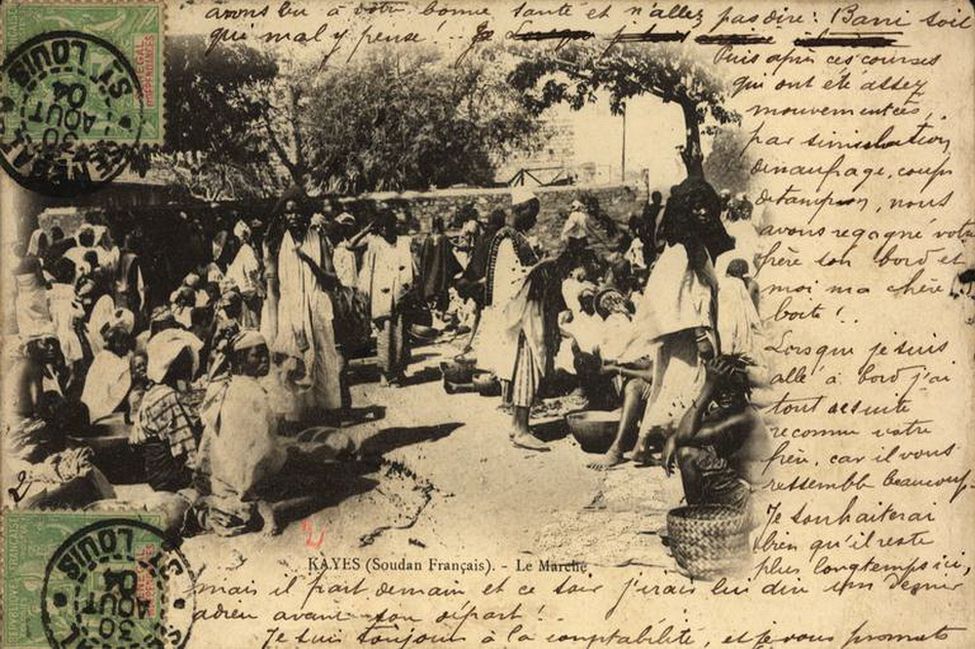 avons bu à votre bonne santé et n'allez pas dire: Barri soit
que mal y pense! .. Je
Puis après ces courses
qui ont été assez
mouvementées,
par simulation
de naufrage, coups
de tampon, nous
avons regagné votre
frère son bord et
moi ma chère
boîte!..
Lorsque je suis
allé à bord j'ai
tout de suite
reconnu votre
frère, car il vous
ressemble beaucoup
Je souhaiterai
bien qu'il reste
plus longtemps ici,
mais il part demain et ce soir j'irais lui dire un dernier
adieu avant son départ!
Je suis toujours à la comptabilité, et je vous promets
KAYES (Soudan Français). - Le Marché
2
2
ST LOUIS
30
AOUT
04
SENEGAL
ST LOUIS
30
AOUT
04